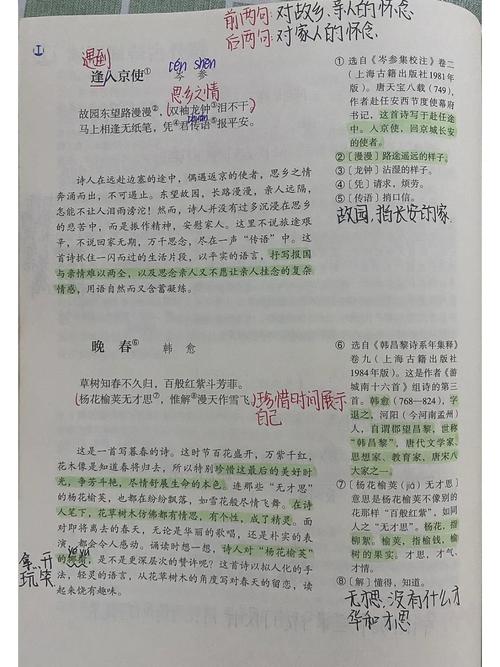 前两句:对故乡、亲人的怀念
后两句:对家人的怀念.
遇到
cén shēn
逢入京使①
岑 参
思乡之情
故园东望路漫漫②,(双袖龙钟③泪不干)
马上相逢无纸笔,凭④君传语⑤报平安。
诗人在远赴边塞的途中,偶遇返京的使者,思乡之情
奔涌而出,不可遏止。东望故园,长路漫漫,亲人远隔,
怎能不让人泪雨滂沱!然而,诗人并没有过多沉浸在思乡
的悲苦中,而是振作精神,安慰家人。这里不说旅途艰
辛,不说回家无期,万千思念,尽在一声“传语”中。这
首诗抓住一闪而过的生活片段,以平实的语言,抒写报国
与亲情难以两全,以及思念亲人又不愿让亲人挂念的复杂
情感,用语自然而又含蓄凝练。
晚 春⑥
韩 愈
草树知春不久归,百般红紫斗芳菲。
(杨花榆荚无才思⑦,惟解⑧漫天作雪飞。)珍惜时间展示
自己
这是一首写暮春的诗。这时节百花盛开,万紫千红,
花木像是知道春将归去,所以特别珍惜这最后的美好时
光,争芳斗艳,尽情舒展生命的本色。连那些“无才思”
的杨花榆荚,也都在纷纷飘落,如雪花般尽情飞舞。在诗
人笔下,花草树木仿佛都有情思,有个性,成了精灵。面
对即将离去的春天,无论是华丽的歌唱,还是朴实的表
演,都会令人感动。诵读时想一想,诗人对“杨花榆荚”
的揶揄,是不是更深层次的赞许呢?这首诗以拟人化的手
法,轻灵的语言,从花草树木的角度写对春天的留恋,读
起来饶有趣味。
yé yú
开
玩笑
① 选自《岑参集校注》卷二
(上海古籍出版社1981年
版)。唐天宝八载(749),
作者赴任安西节度使幕府
书记,这首诗写于赴任途
中。入京使,回京城长安
的使者。
②〔漫漫〕路途遥远的样子。
③〔龙钟〕沾湿的样子。
④〔凭〕请求,烦劳。
⑤〔传语〕捎口信。
故园,指长安的家.
⑥ 选自《韩昌黎诗系年集释》
卷九(上海古籍出版社
1984年版)。这是作者《游
城南十六首》组诗的第三
首。韩愈(768—824),字
退之,河阳(今河南孟州)
人,自谓郡望昌黎,世称
“韩昌黎”,唐代文学家、
思想家、教育家,唐宋八
大家之一。
⑦〔杨花榆荚(jiá)无才思〕
意思是杨花榆荚不像别的
花那样“百般红紫”,如同
人之“无才思”。杨花,指
柳絮。榆荚,指榆钱,榆
树的果实。才思,才气,
才情。
⑧〔解〕懂得,知道。
无才思:没有什么才
华和才思